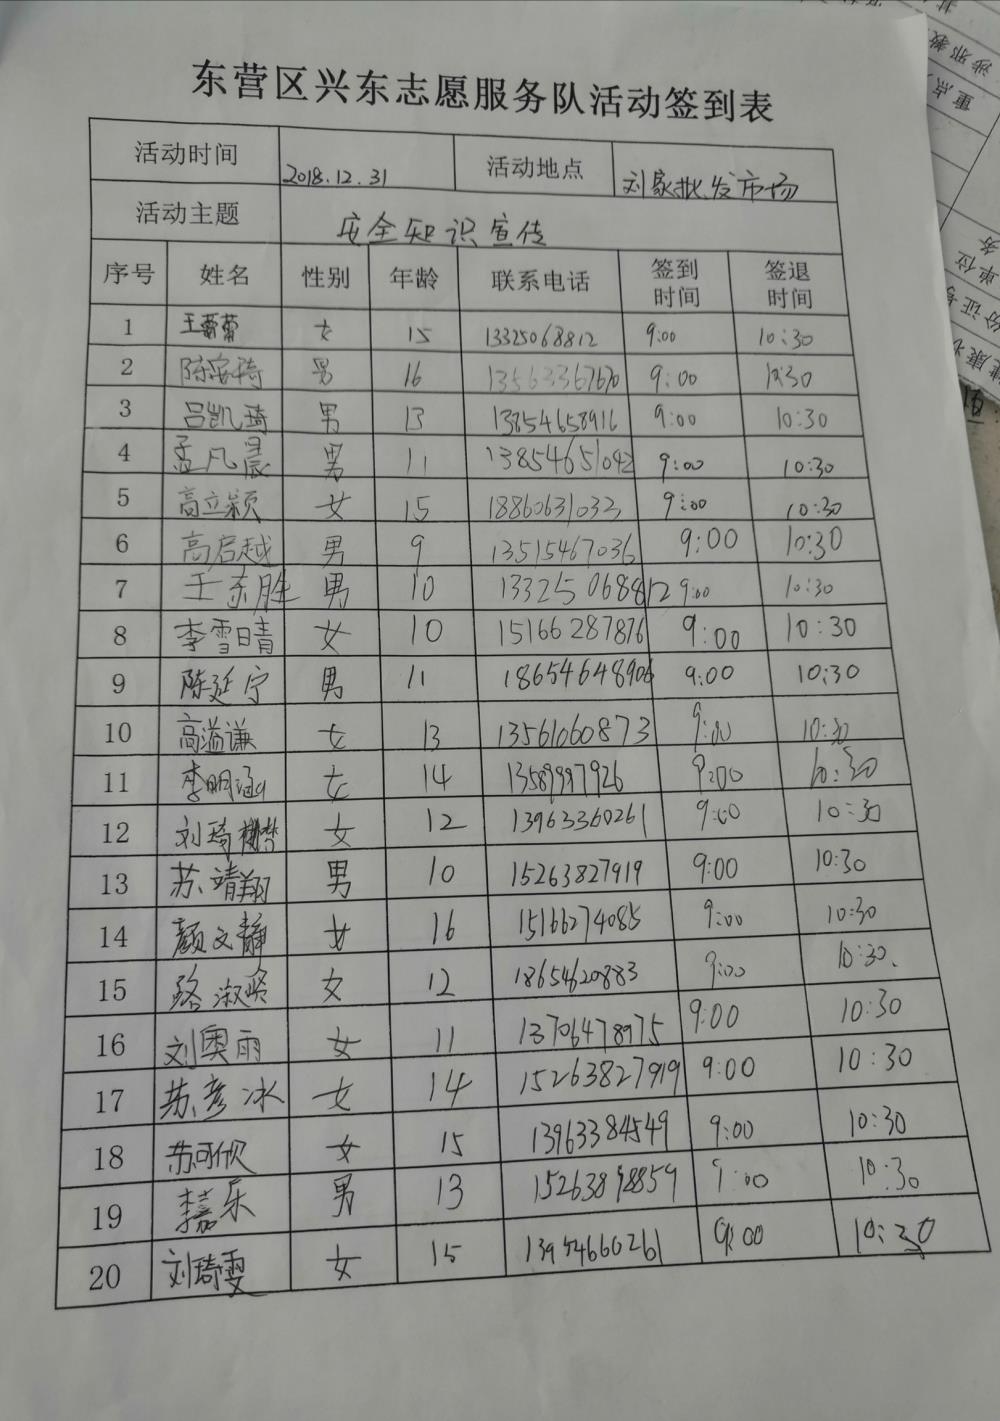 东营区兴东志愿服务队活动签到表
活动时间 2018.12.31 活动地点 刘家批发市场
活动主题 安全知识宣传
序号 姓名 性别 年龄 联系电话 签到时间 签退时间
1 王蕾蕾 女 15 13325068812 9:00 10:30
2 陈家琦 男 16 13563367670 9:00 10:30
3 吕凯琦 男 13 13854658916 9:00 10:30
4 孟凡晨 男 11 13854651042 9:00 10:30
5 高立颖 女 15 18860631033 9:00 10:30
6 高启越 男 9 13515467036 9:00 10:30
7 王东胜 男 10 13325068812 9:00 10:30
8 李雪晴 女 10 15166287876 9:00 10:30
9 陈廷宁 男 11 18654648906 9:00 10:30
10 高溢谦 女 13 13561060873 9:00 10:30
11 李明涵 女 14 13589997926 9:00 10:30
12 刘琦 女 12 13963360261 9:00 10:30
13 苏靖翔 男 10 15263827919 9:00 10:30
14 颜文静 女 16 15166274085 9:00 10:30
15 路淑贤 女 12 18654620883 9:00 10:30
16 刘奥雨 女 11 13706478975 9:00 10:30
17 苏彦冰 女 14 15263827919 9:00 10:30
18 苏可欣 女 15 13963384549 9:00 10:30
19 李嘉乐 男 13 15263898859 9:00 10:30
20 刘琦雯 女 15 13954660261 9:00 10:30
涉邪教
重点
单位
务
份证号
健康